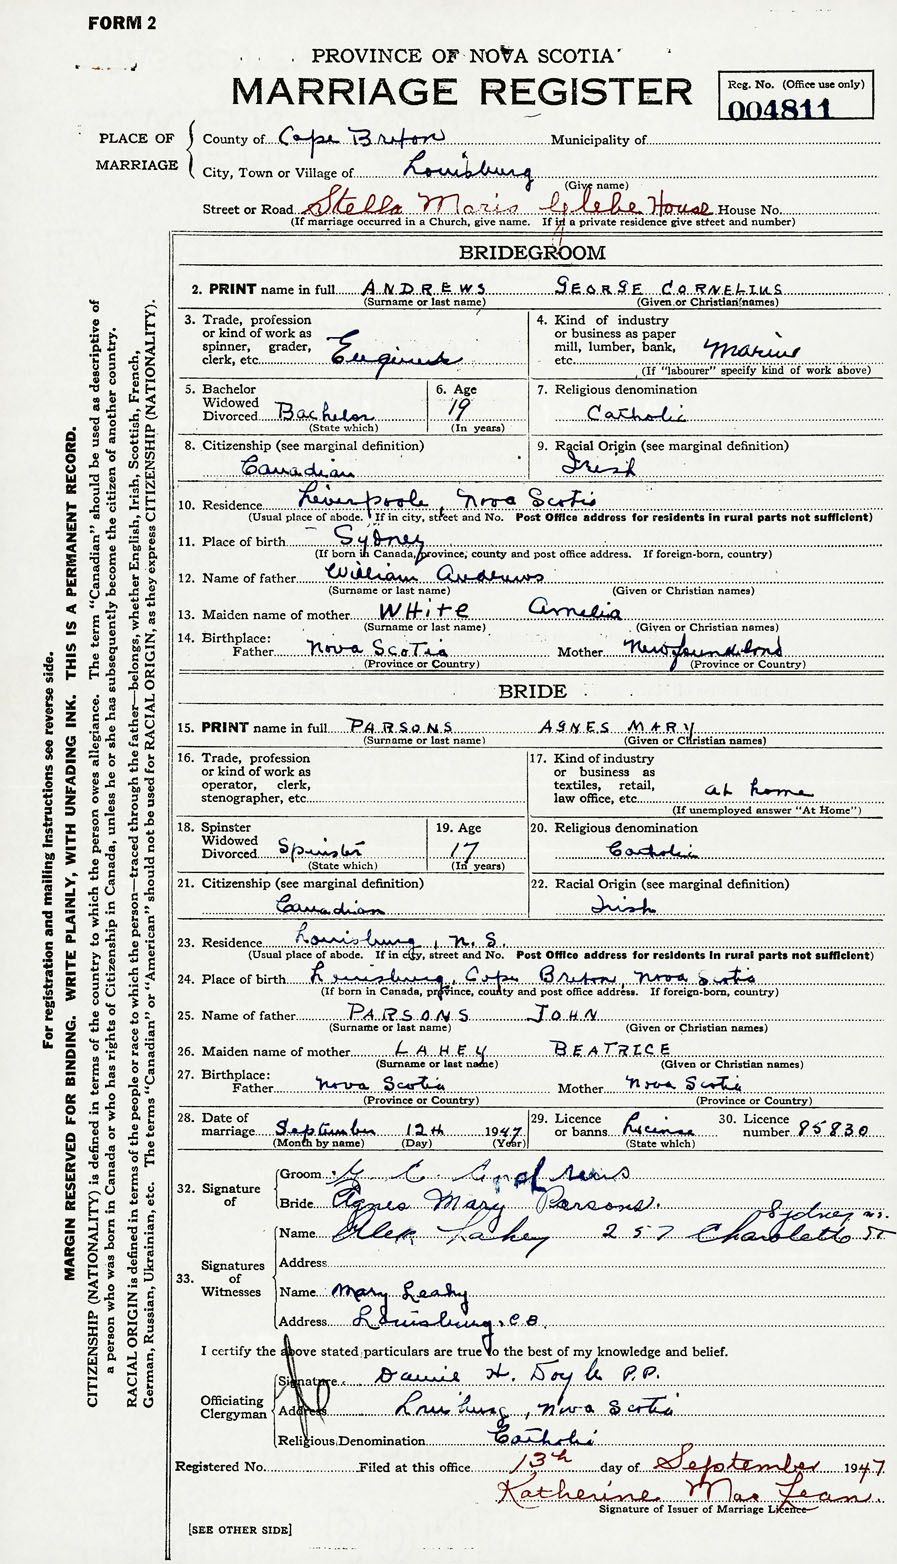 FORM 2
PROVINCE OF NOVA SCOTIA
MARRIAGE REGISTER
Reg. No. (Office use only)
004811
PLACE OF MARRIAGE
County of Cape Breton Municipality of
City, Town or Village of Louisburg
(Give name)
Street or Road Stella Maris Glebe House House No.
(If marriage occurred in a Church, give name. If in a private residence give street and number)
BRIDEGROOM
2. PRINT name in full ANDREWS GEORGE CORNELIUS
(Surname or last name) (Given or Christian names)
3. Trade, profession or kind of work as spinner, grader, clerk, etc. Engineer
4. Kind of industry or business as paper mill, lumber, bank, etc. Marine
(If "labourer" specify kind of work above)
5. Bachelor Widowed Divorced Bachelor
(State which)
6. Age 19
(In years)
7. Religious denomination
Catholic
8. Citizenship (see marginal definition)
Canadian
9. Racial Origin (see marginal definition)
Irish
10. Residence Liverpoole, Nova Scotia
(Usual place of abode. If in city, street and No. Post Office address for residents in rural parts not sufficient)
11. Place of birth Sydney
(If born in Canada, province, county and post office address. If foreign-born, country)
12. Name of father William Andrews
(Surname or last name) (Given or Christian names)
13. Maiden name of mother WHITE Amelia
(Surname or last name) (Given or Christian names)
14. Birthplace:
Father Nova Scotia Mother Newfoundland
(Province or Country) (Province or Country)
BRIDE
15. PRINT name in full PARSONS AGNES MARY
(Surname or last name) (Given or Christian names)
16. Trade, profession or kind of work as operator, clerk, stenographer, etc.
17. Kind of industry or business as textiles, retail, law office, etc. at home
(If unemployed answer "At Home")
18. Spinster Widowed Divorced Spinster
(State which)
19. Age 17
(In years)
20. Religious denomination
Catholic
21. Citizenship (see marginal definition)
Canadian
22. Racial Origin (see marginal definition)
Irish
23. Residence Louisburg, N.S.
(Usual place of abode. If in city, street and No. Post Office address for residents in rural parts not sufficient)
24. Place of birth Louisburg, Cape Breton, Nova Scotia
(If born in Canada, province, county and post office address. If foreign-born, country)
25. Name of father PARSONS JOHN
(Surname or last name) (Given or Christian names)
26. Maiden name of mother LAHEY BEATRICE
(Surname or last name) (Given or Christian names)
27. Birthplace:
Father Nova Scotia Mother Nova Scotia
(Province or Country) (Province or Country)
28. Date of marriage September 12th 1947
(Month by name) (Day) (Year)
29. Licence or banns License
(State which)
30. Licence number 85830
32. Signature of
Groom G C Andrews
Bride Agnes Mary Parsons.
33. Signatures of Witnesses
Sydney N.S.
Name Alex Lahey 257 Charolette St
Address
Name Mary Leahy
Address Louisburg, C.B.
I certify the above stated particulars are true to the best of my knowledge and belief.
Officiating Clergyman
Signature H. Doyle P.P.
Address Louisburg, Nova Scotia
Religious Denomination Catholic
Registered No. Filed at this office 13th day of September 1947
Katherine MacLean.
Signature of Issuer of Marriage Licence
[SEE OTHER SIDE]
For registration and mailing instructions see reverse side.
MARGIN RESERVED FOR BINDING. WRITE PLAINLY, WITH UNFADING INK. THIS IS A PERMANENT RECORD.
CITIZENSHIP (NATIONALITY) is defined in terms of the country to which the person owes allegiance. The term "Canadian" should be used as descriptive of
a person who was born in Canada or who has rights of Citizenship in Canada, unless he or she has subsequently become the citizen of another country.
RACIAL ORIGIN is defined in terms of the people or race to which the person—traced through the father—belongs, whether English, Irish, Scottish, French,
German, Russian, Ukrainian, etc. The terms "Canadian" or "American" should not be used for RACIAL ORIGIN, as they express CITIZENSHIP (NATIONALITY).